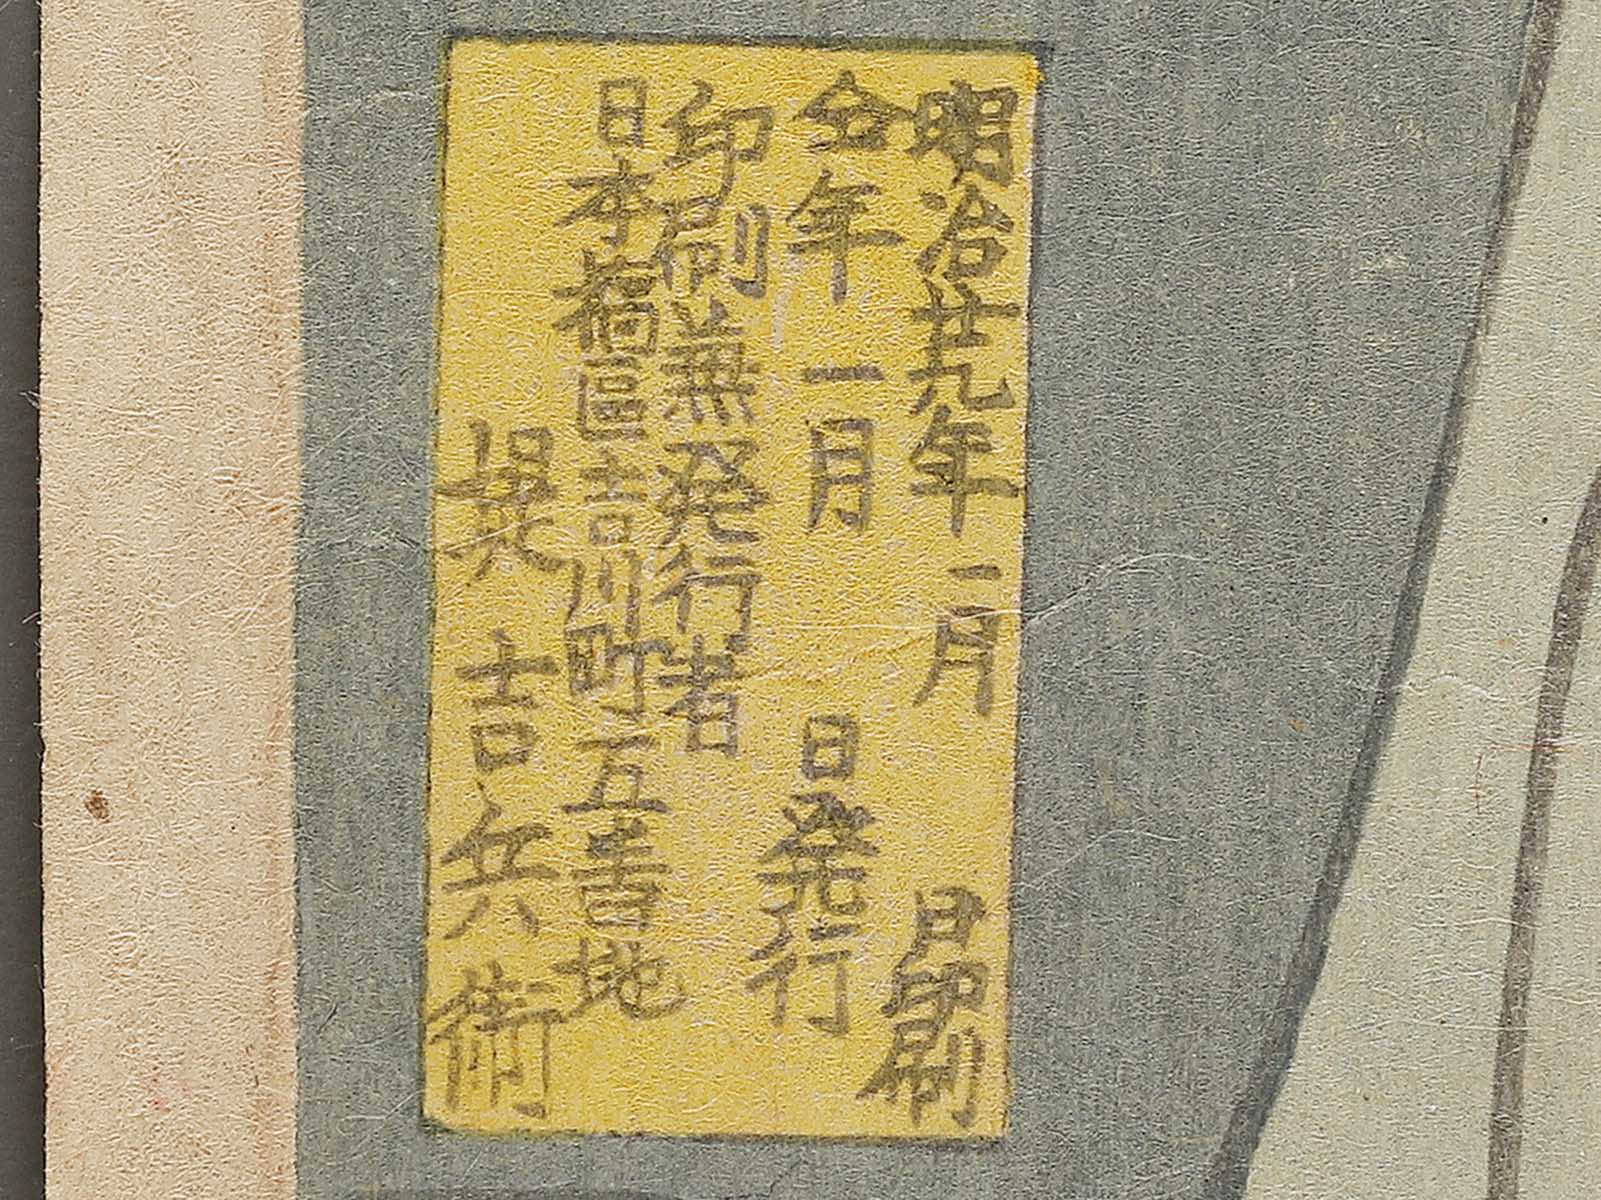 明治廿九年一月 日印刷
仝年一月 日発行
印刷兼発行者
日本橋區吉川町二五番地
堤吉兵衛